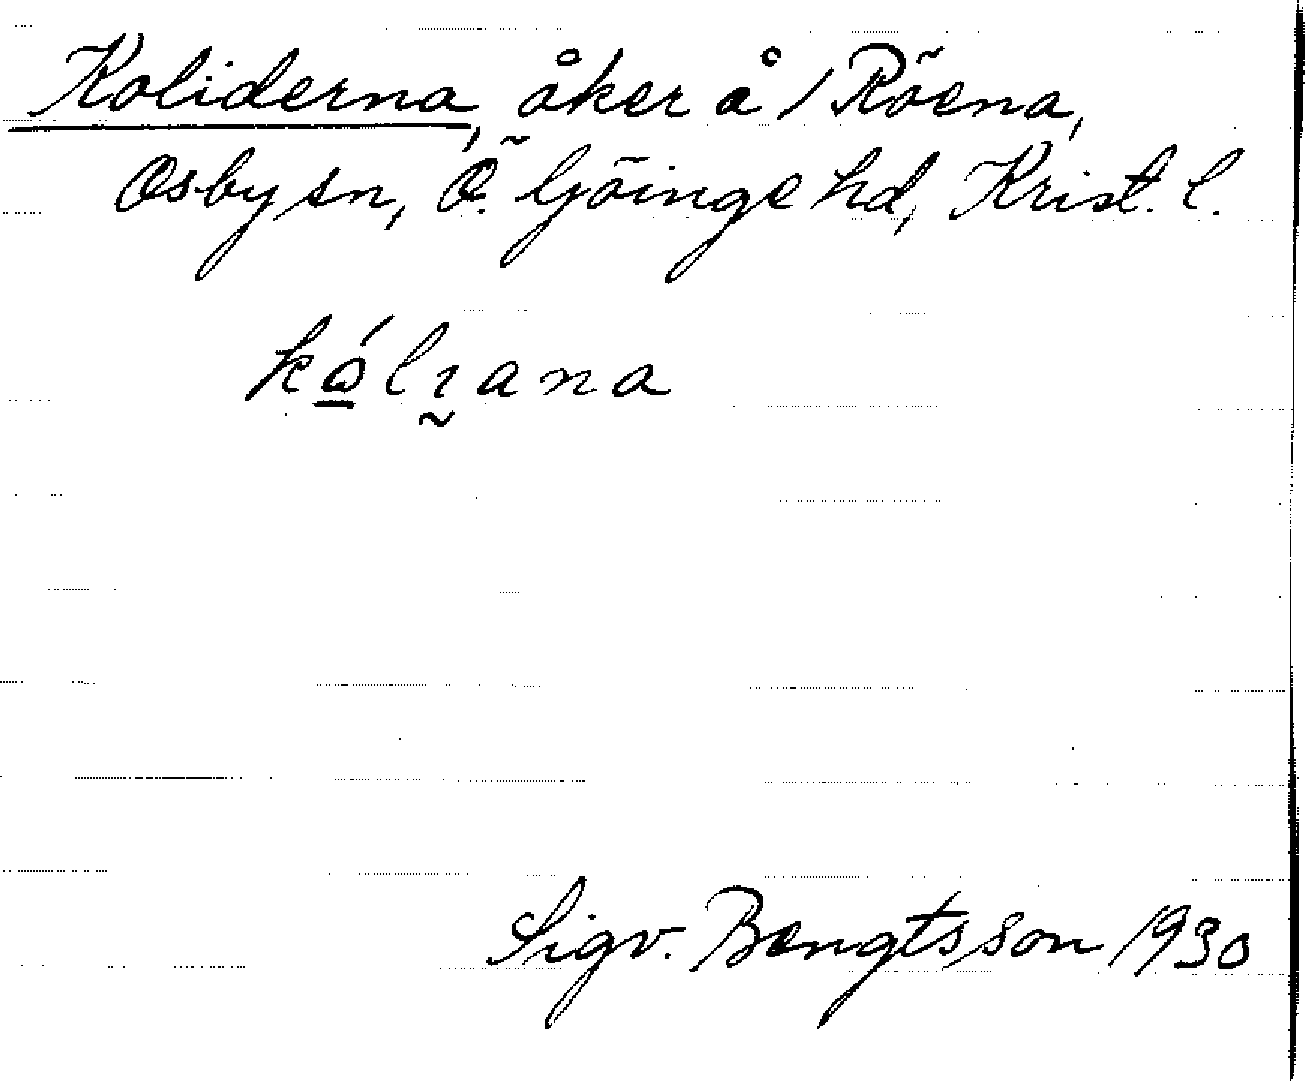 Koliderna, åker å 1 Röena,
Osby sn, Ö. Göinge hd, Krist. l.
Sigv. Bengtsson 1930